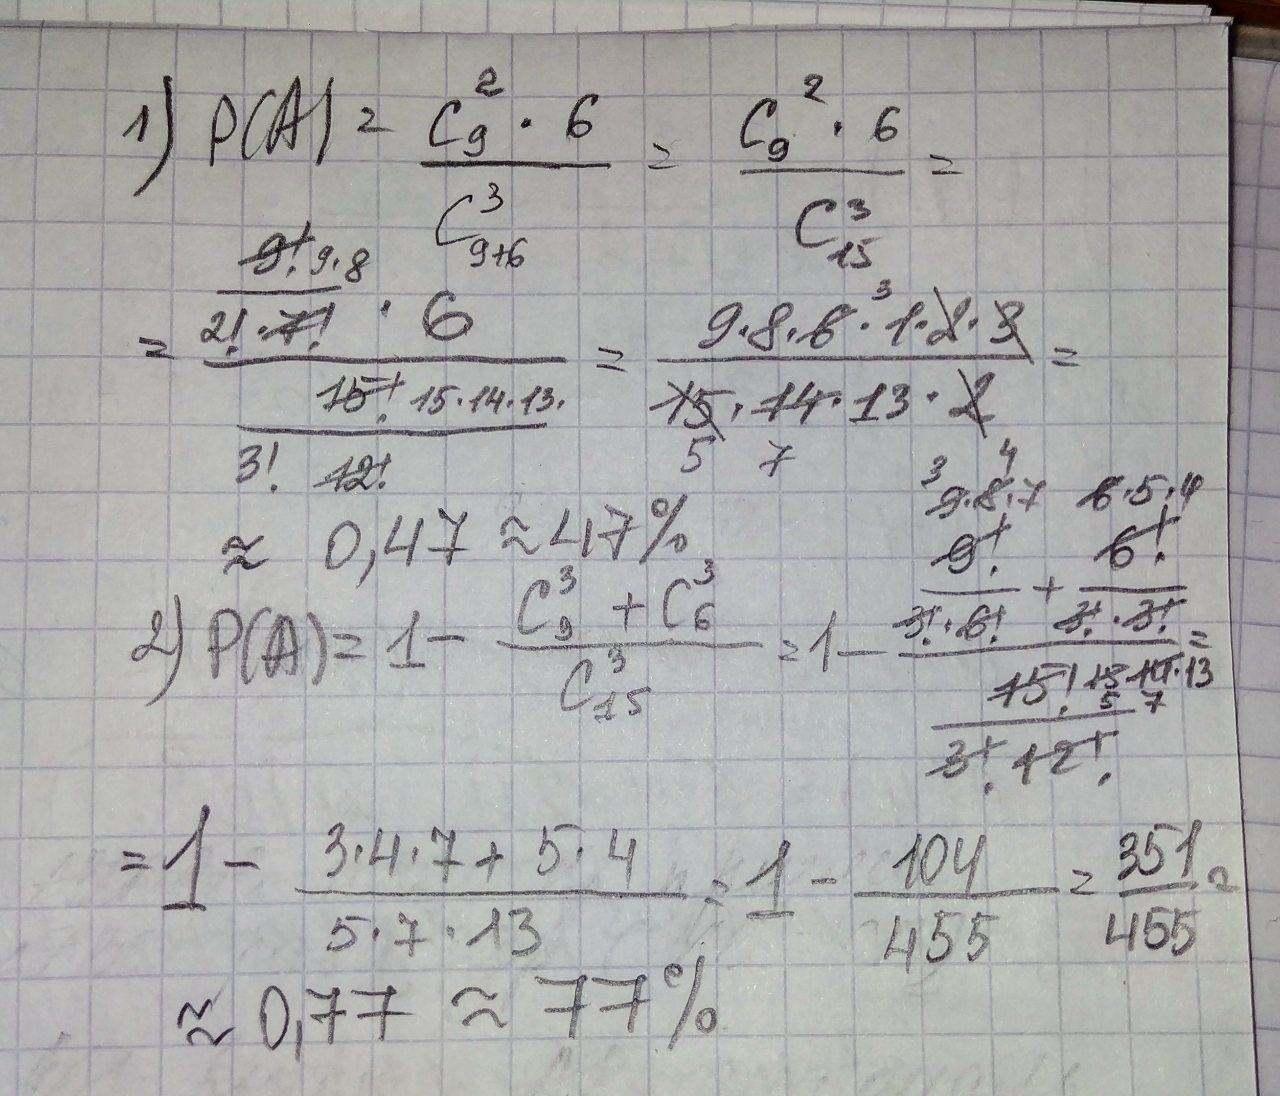 1) P(A) = C₉² · 6 / C³₉₊₆ = C₉² · 6 / C³₁₅ =
= (9! 9·8 / 2!·7! · 6) / (15! 15·14·13· / 3! 12!) = 9·8·6·³1·2·3 / 15·14·13·2 =
5 7
≈ 0,47 ≈ 47%
2) P(A) = 1 - (C₉³ + C₆³) / C³₁₅ = 1 - (9! 9·8·7 3 4 / 3!·6! + 6! 6·5·4 / 3!·3!) / (15! 15·14·13 5 7 / 3! 12!) =
= 1 - (3·4·7 + 5·4) / (5·7·13) = 1 - 104 / 455 = 351 / 455 ≈
≈ 0,77 ≈ 77%